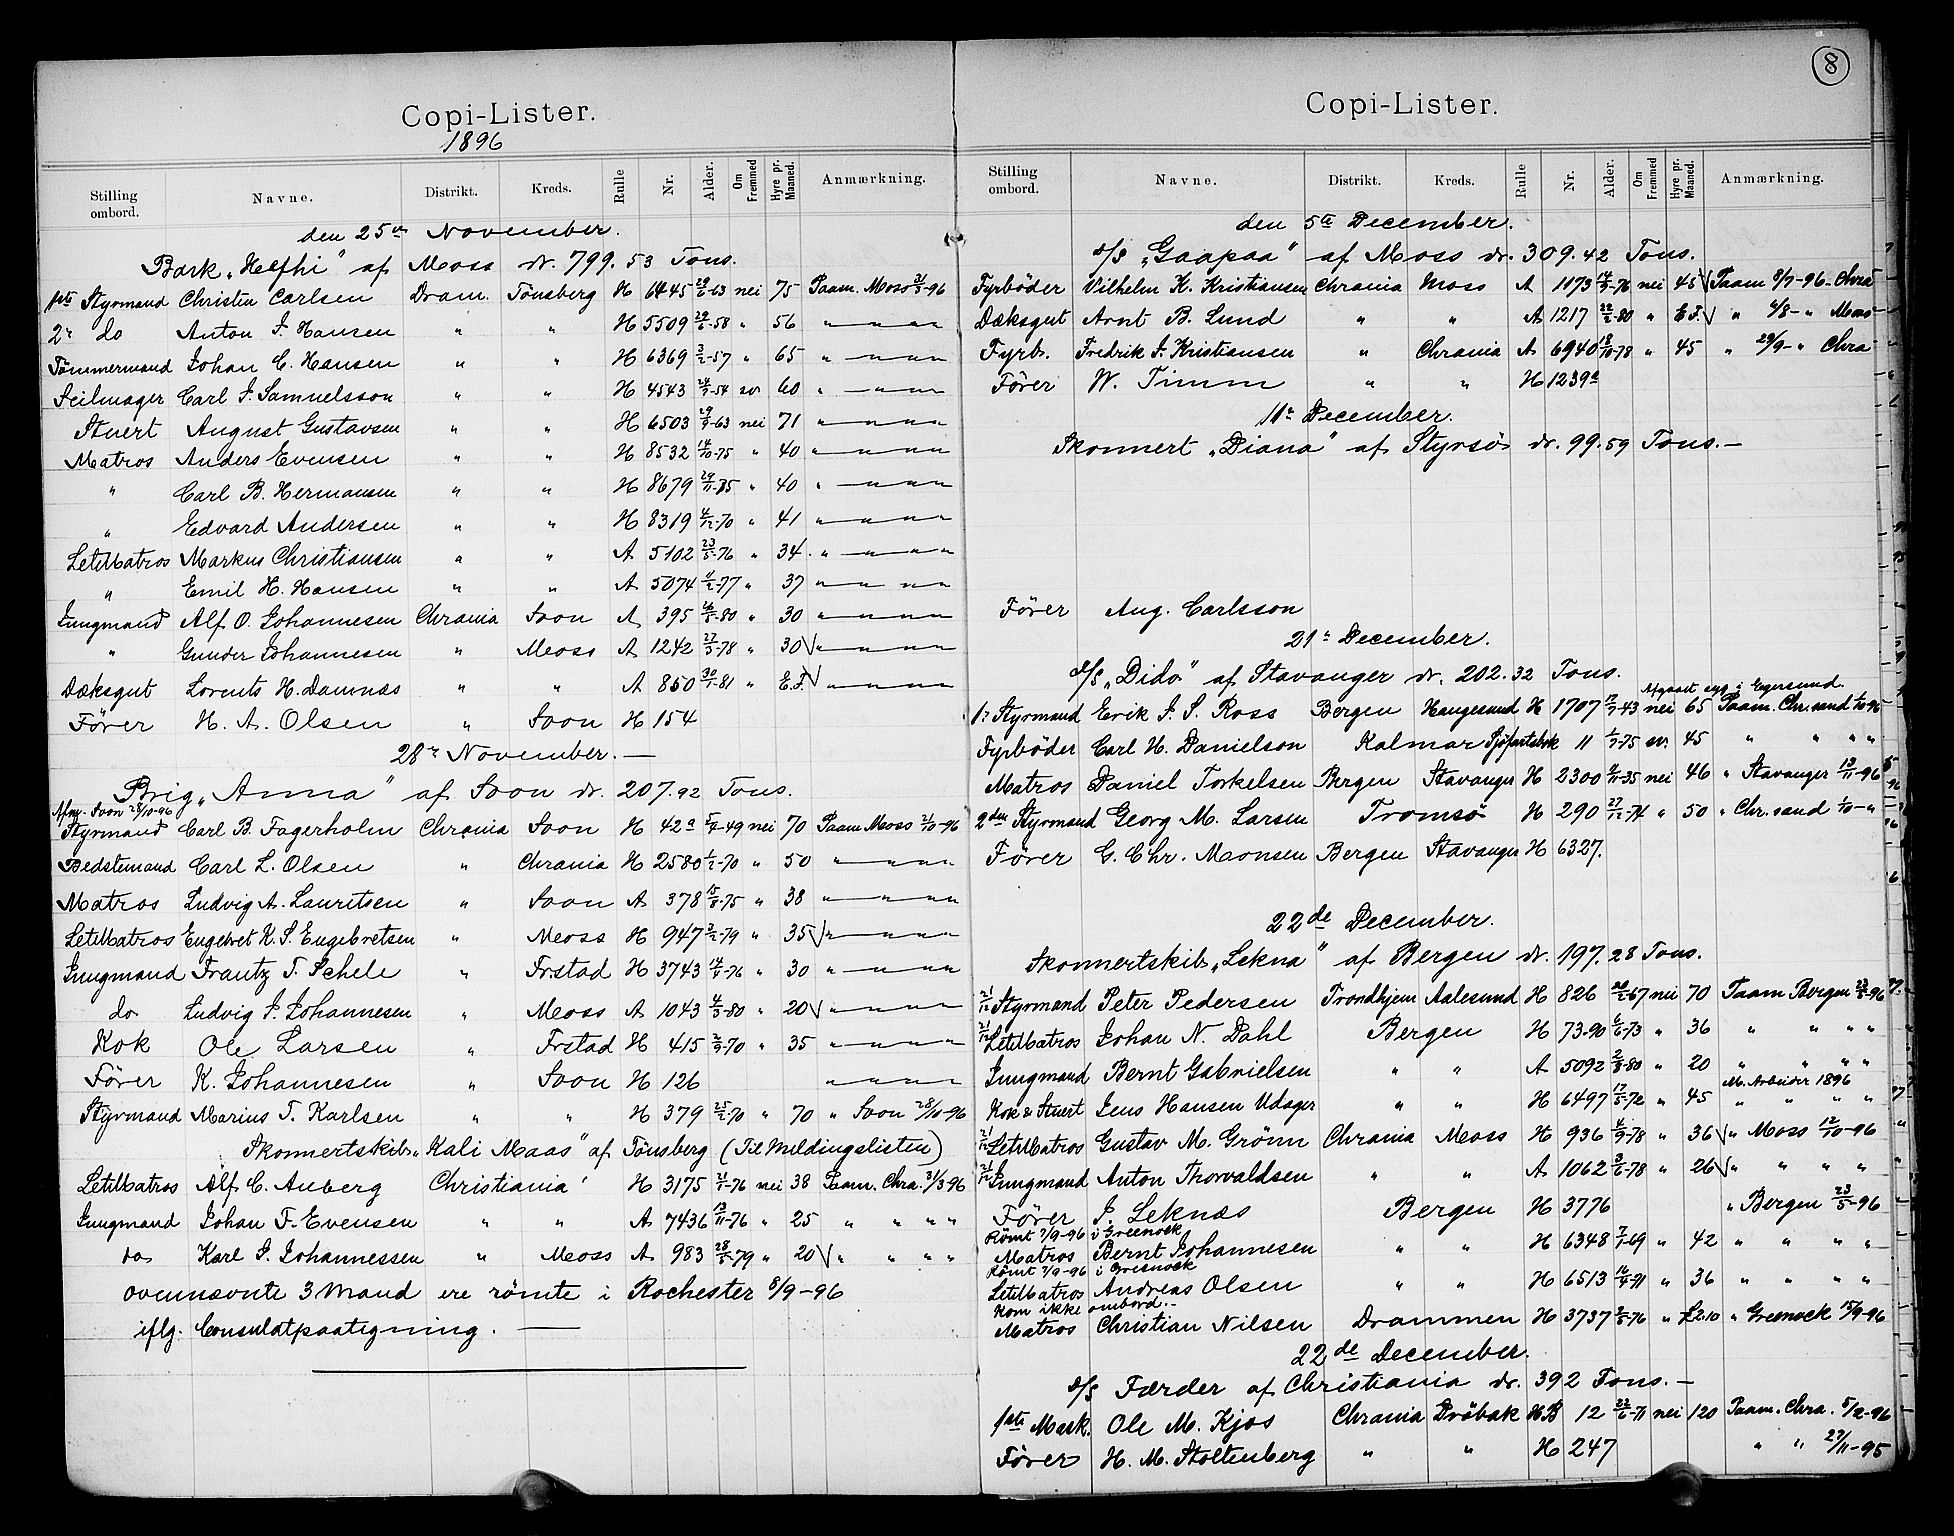 Copi-Lister.
1896
Stilling ombord. Navne. Distrikt. Kreds. Rulle Nr. Alder. Om Fremmed Hyre pr. Maaned. Anmærkning.
den 25de November.
Bark „Helfhi" af Moss dr. 799.53 Tons.
1ste Styrmand Christen Carlsen Dram. Tönsberg H 29/6-63 nei 75 Paam. Moss
2n do Anton J. Hansen " " H 5509 29/6-58 " 56 " " " "
Tömmermand Johan C. Hansen " " H 6369 3/2-57 " 65 " " " "
Seilmager Carl J. Samuelsson " " H 4543 24/9-54 sv. 60 " " " "
Stuert August Gustavsen " " H 6503 29/9-63 nei 71 " " " "
Matros Anders Evensen " " H 8532 14/10-75 " 40 " " " "
" Carl B. Hermansen " " H 8679 29/11- " 40 " " " "
" Edvard Andersen " " H 8319 4/12-70 " 41 " " " "
LetMatros Markus Christiansen " " A 5102 23/5-76 " 34. " " " "
" Emil H. Hansen " " A 5074 4/2-77 " 37 " " " "
Jungmand Alf O. Johannesen Chrania Soon A 395 16/8-80 " 30 " " " "
" Gunder Johannesen " Moss A 1242 27/3-78 " 30 √ " " " "
Dæksgut Lorents H. Damnæs " " A 850 30/1-81 " E.F. √ " " " "
Förer H. A. Olsen " Soon H 154
28n November. —
Brig „Anna" af Soon dr. 207.92 Tons.
Afm. Soon 28/10-96
Styrmand Carl B. Fagerholm Chrania Soon H 42a 5/4-49 nei 70 Paam Moss 21/10-96
Bedstemand Carl L. Olsen " Chrania H 2580 1/2-70 " 50 " " " "
Matros Ludvig A. Lauritsen " Soon A 378 15/8-75 " 38 " " " "
LetMatros Engebret K. S. Engebretsen " Moss H 947 3/2-79 " 35 √ " " " "
Jungmand Frantz T. Schele " Frstad H 3743 14/9-76 " 30 " " " "
do Ludvig J. Johannesen " Moss A 1043 4/3-80 " 20 √ " " " "
Kok Ole Larsen " Frstad H 415 2/9-70 " 35 " " " "
Förer K. Johannesen " Soon H 126 " " " "
Styrmand Marius T. Karlsen " " H 379 25/2-70 " 70 " Soon 28/10-96
Skonnertskib „Kali Maas" af Tönsberg (Til Meldingslisten)
LetMatros Alf C. Auberg Christiania H 3175 21/1-76 nei 38 Paam. Chra. 31/3-96
Jungmand Johan F. Evensen " " A 7436 13/11-76 " 25 " " " "
do Karl S. Johannessen " Moss A 983 28/5-79 " 20 √ " " " "
ovennævnte 3 Mand ere römte i Rochester 8/9-96
iflg. Consulatpaategning. —
8
Copi-Lister.
Stilling ombord. Navne. Distrikt. Kreds. Rulle Nr. Alder. Om Fremmed Hyre pr. Maaned. Anmærkning.
den 5te December.
s/s „Gaapaa" af Moss dr. 309.42 Tons.
Fyrböder Vilhelm K. Kristiansen Chrania Moss A 1173 14/9-76 nei 45 √ Paam 8/9-96 - Chra
Dæksgut Arnt B. Lund " " A 1217 22/2-80 " E.F. √ " 4/8 - " Moss
Fyrb. Fredrik J. Kristiansen " Chrania A 6940 18/10-78 " 45 " 29/9 - " Chra
Förer W. Timm " " H 1239a
11n December.
Skonnert „Diana" af Styrsö dr. 99.59 Tons. —
Förer Aug. Carlsson
21n December.
s/s „Dido" af Stavanger dr. 202.32 Tons.
Afgaaet syg i Egersund.
1n Styrmand Erik J. S. Ross Bergen Haugesund H 1707 17/7-43 nei 65 Paam. Chr.sand 1/10-96
Fyrböder Carl H. Danielson Kalmar Sjöfartsbok 11 1/7-75 sv. 45 " " " "
Matros Daniel Torkelsen Bergen Stavanger H 2300 -35 nei 46 " Stavanger 13/11-96
2den Styrmand Georg M. Larsen Tromsö H 290 27/12-74 " 50 " Chr.sand 1/10 - "
Förer G. Chr. Monsen Bergen Stavanger H 6327.
22de December.
Skonnertskib „Lekna" af Bergen dr. 197.28 Tons.
21/12 Styrmand Peter Pedersen Trondhjem Aalesund H 826 -67 nei 70 Paam Bergen 23/5-96
21/12 LetMatros Johan N. Dahl Bergen H 7390 6/6-73 " 36 " " " "
Jungmand Bernt Gabrielsen " " A 5092 2/8-80 " 20 " " " "
M. Arbeider 1896
Kok & Stuert Jens Hansen Udager " " H 6497 17/5-72 " 45 " " " "
21/12 LetMatros Gustav M. Grönn Chrania Moss H 936 6/9-78 " 36 √ " Moss 12/10-96
21/12 Jungmand Anton Thorvaldsen " " A 1062 3/6-78 " 26 √ " " " "
Förer J. Leknæs Bergen H 3776 " Bergen 23/5-96
Römt 7/9-96 i Greenock
Matros Bernt Johannesen " " H 6348 7/1-69 " 42 " " " "
Römt 7/9-96 i Greenock
LetMatros Andreas Olsen " " H 6513 16/4-71 " 36 " " " "
Kom ikke ombord. -
Matros Christian Nilsen Drammen H 3737 2/5-76 " £2.10 " Greenock 15/9-96
22de December.
s/s Færder af Christiania dr. 392 Tons. —
1ste Mask. Ole M. Kjos Chrania Dröbak HB 12 22/6-71 nei 120 Paam. Chra. 5/2-96
Förer H. M. Stoltenberg " " H 247 " " 27/11-95